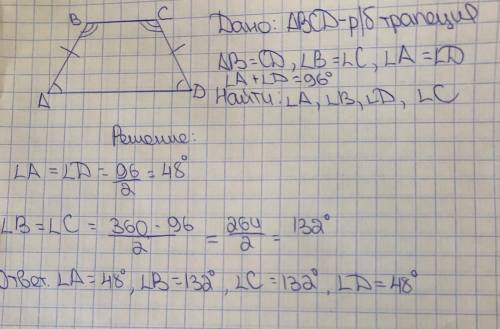 B C
A D
Дано: ABCD-р/б трапеция
AB=CD, ∠B=∠C, ∠A=∠D
∠A+∠D=96°
Найти: ∠A, ∠B, ∠D, ∠C
Решение:
∠A=∠D=96/2=48°
∠B=∠C=360-96/2=264/2=132°
Ответ. ∠A=48°, ∠B=132°, ∠C=132°, ∠D=48°